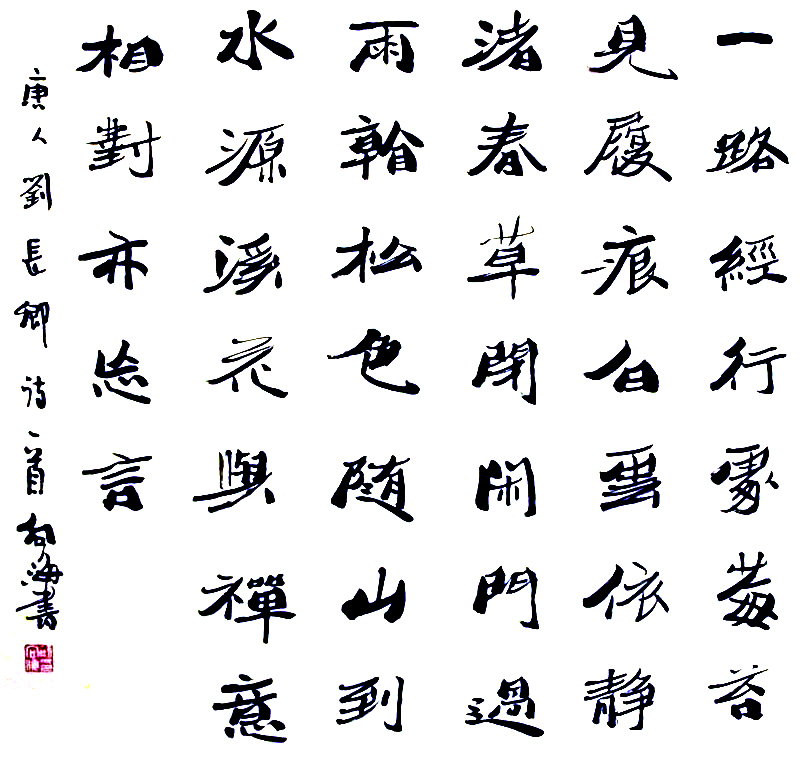 一路經行處莓苔
見履痕白雲依静
渚春草閉閑門過
雨看松色随山到
水源溪花與禪意
相對亦忘言
唐人劉長卿詩一首向海書